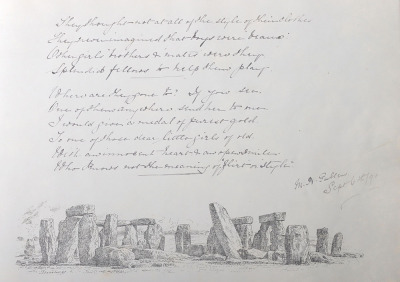 They thought not at all of the style of their clothes
They never imagined that boys were beaux
Other girls' brothers & mates were they
Splendid fellows to help them play

Where are they gone to? If you see
One of them anywhere send her to me
I would give a medal of purest gold
To one of those dear little girls of old
With an innocent heart & an open smile
Who knows not the meaning of "flirt" or "style"
Sept 6